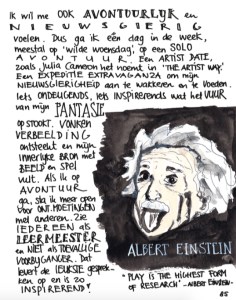 IK WIL ME OOK AVONTUURLIJK EN
NIEUWSGIERIG
VOELEN. DUS GA IK ÉÉN DAG IN DE WEEK,
MEESTAL OP 'WILDE WOENSDAG', OP EEN SOLO
AVONTUUR. EEN ARTIST DATE,
ZOALS JULIA CAMERON HET NOEMT IN 'THE ARTIST WAY.'
EEN EXPEDITIE EXTRAVAGANZA OM MIJN
NIEUWSGIERIGHEID AAN TE WAKKEREN EN TE VOEDEN.
IETS ONDEUGENDS, IETS INSPIRERENDS WAT HET VUUR
VAN MIJN FANTASIE
OPSTOOKT. VONKEN
VERBEELDING
ONTSTEEKT EN MIJN
INNERLIJKE BRON MET
BEELDEN EN SPEL
VULT. ALS IK OP
AVONTUUR
GA, STA IK MEER OPEN
VOOR ONTMOETINGEN
MET ANDEREN. ZIE
IEDEREEN ALS
LEERMEESTER
EN NIET ALS TOEVALLIGE
VOORBYGANGER. DAT
LEVERT DE LEUKSTE GESPREK-
KEN OP EN IS ZO
INSPIREREND!
ALBERT EINSTEIN
"PLAY IS THE HIGHEST FORM
OF RESEARCH" -ALBERT EINSTEIN-
85